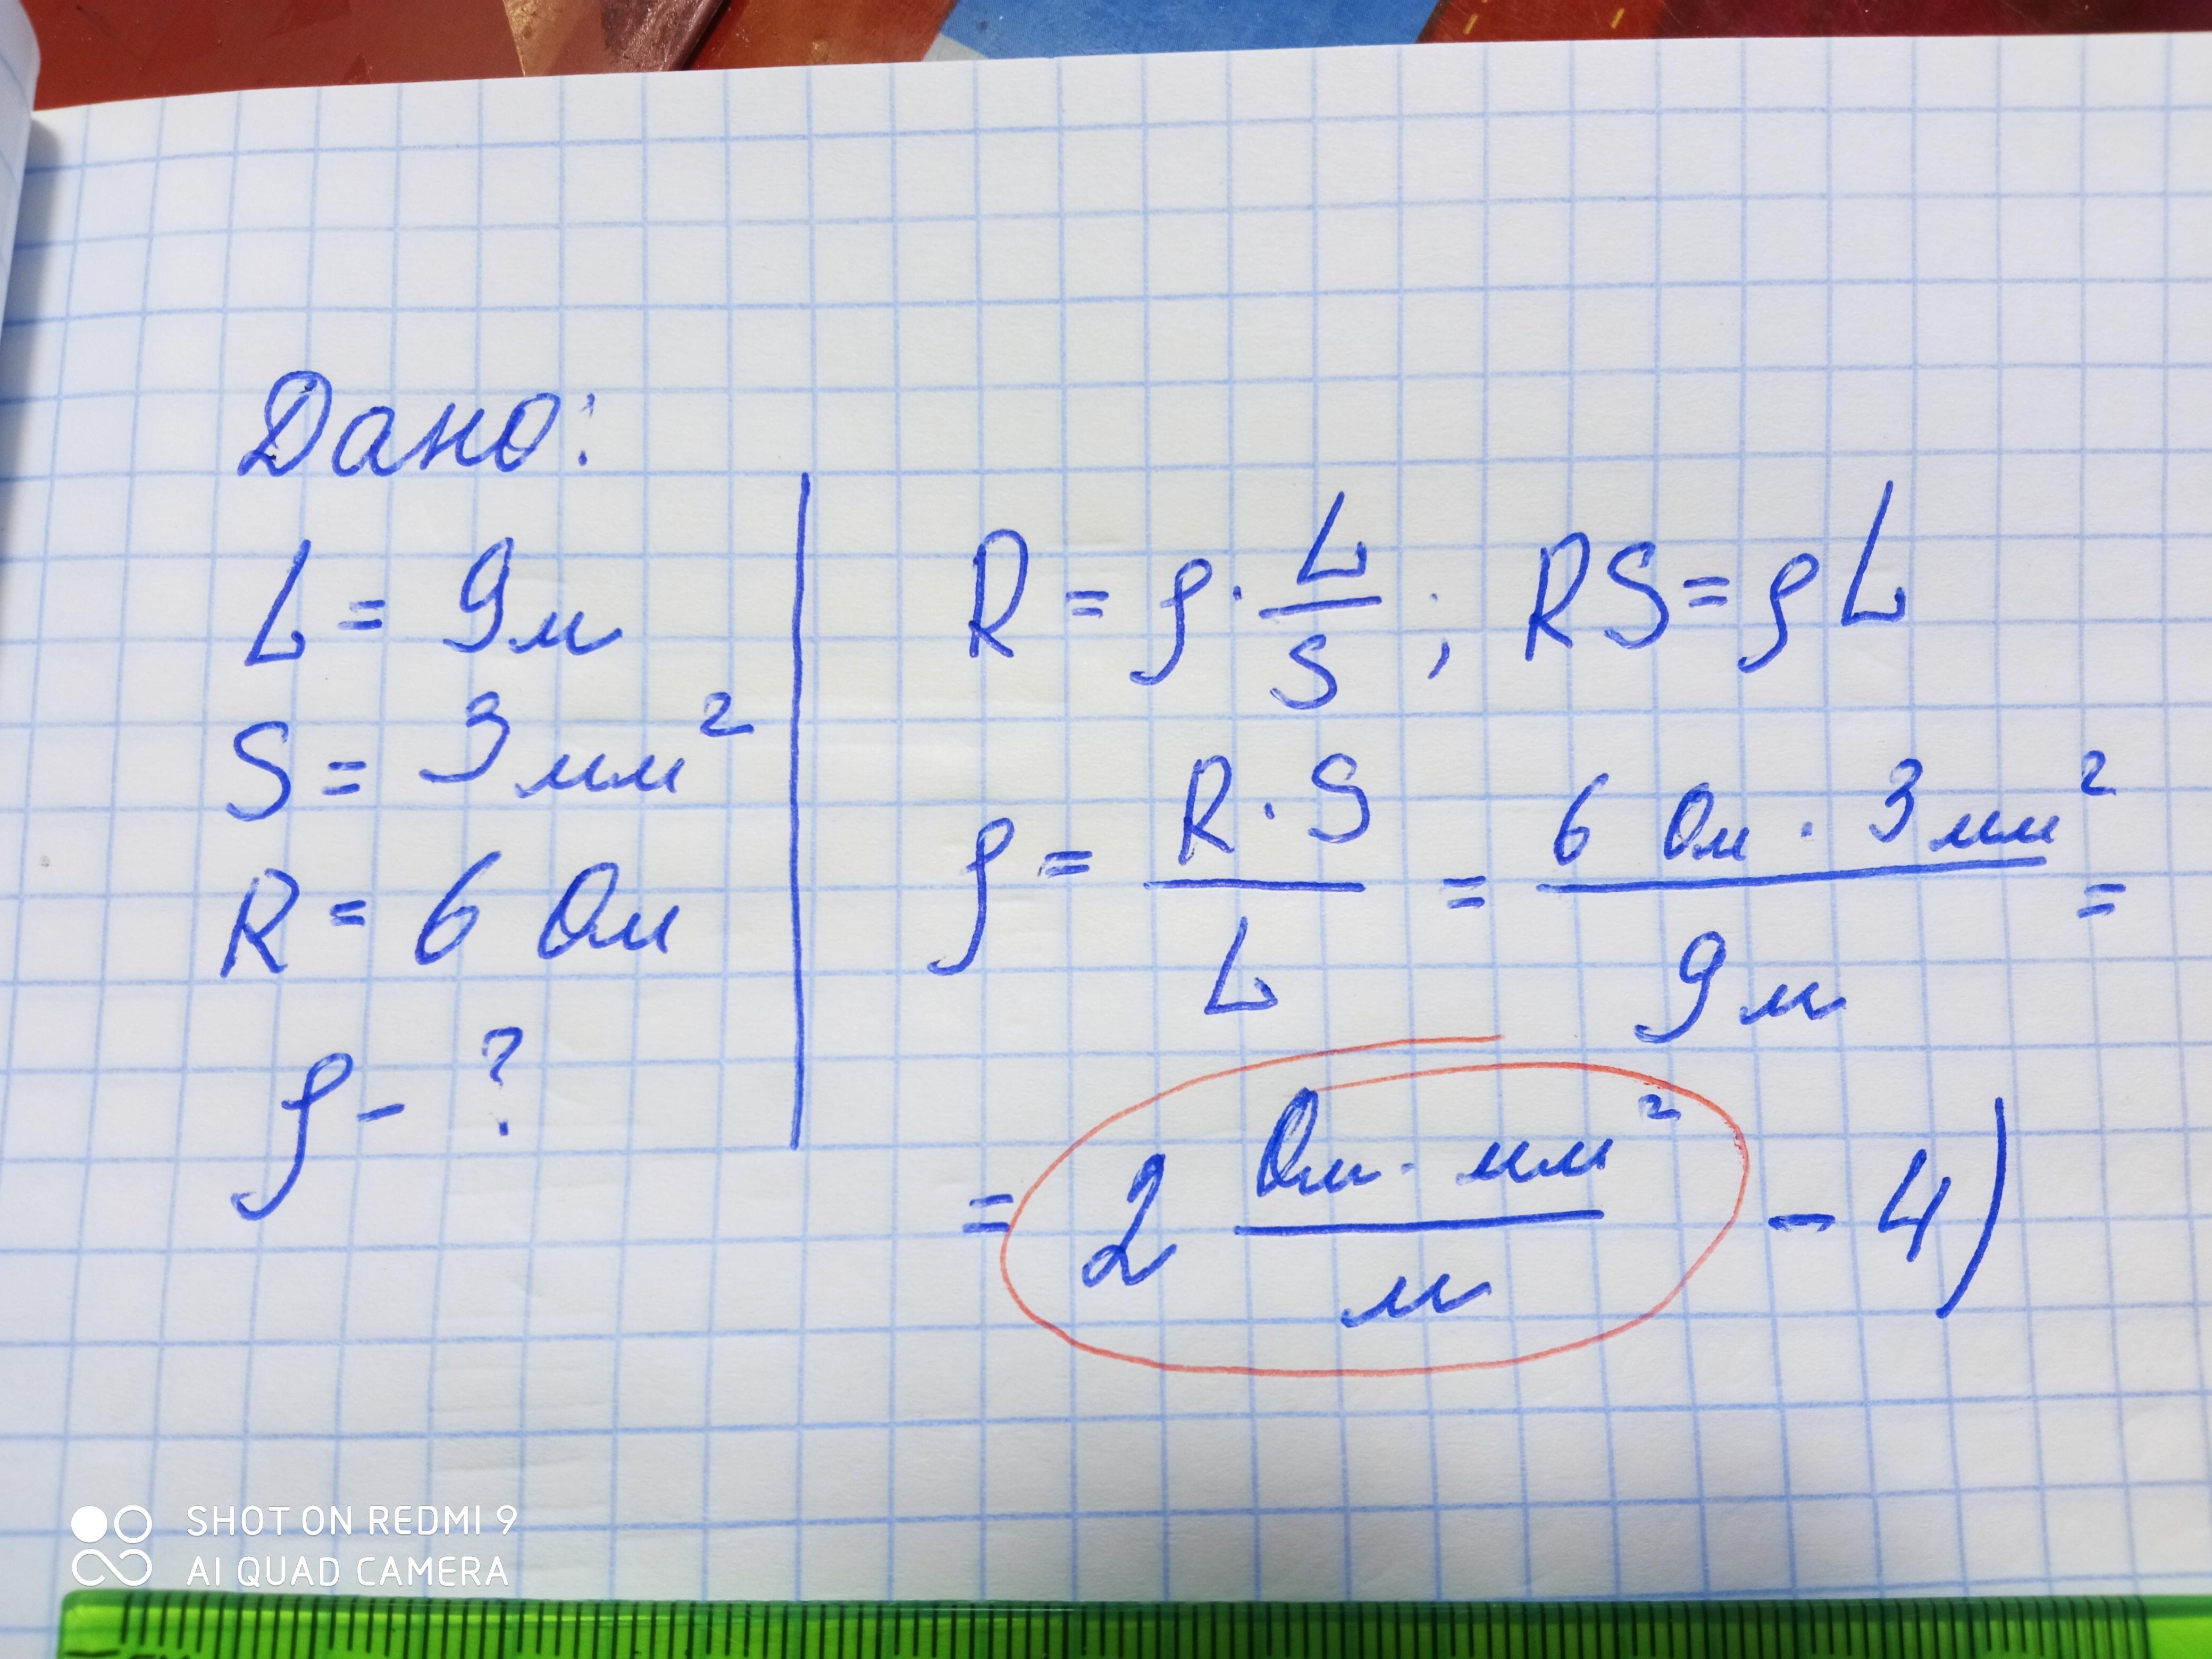 Дано:
L = 9м
S = 3 мм²
R = 6 Ом
ρ - ?
R = ρ · L/S ; RS = ρL
ρ = R · S / L = 6 Ом · 3 мм² / 9 м =
= 2 Ом · мм² / м - 4)
SHOT ON REDMI 9
AI QUAD CAMERA